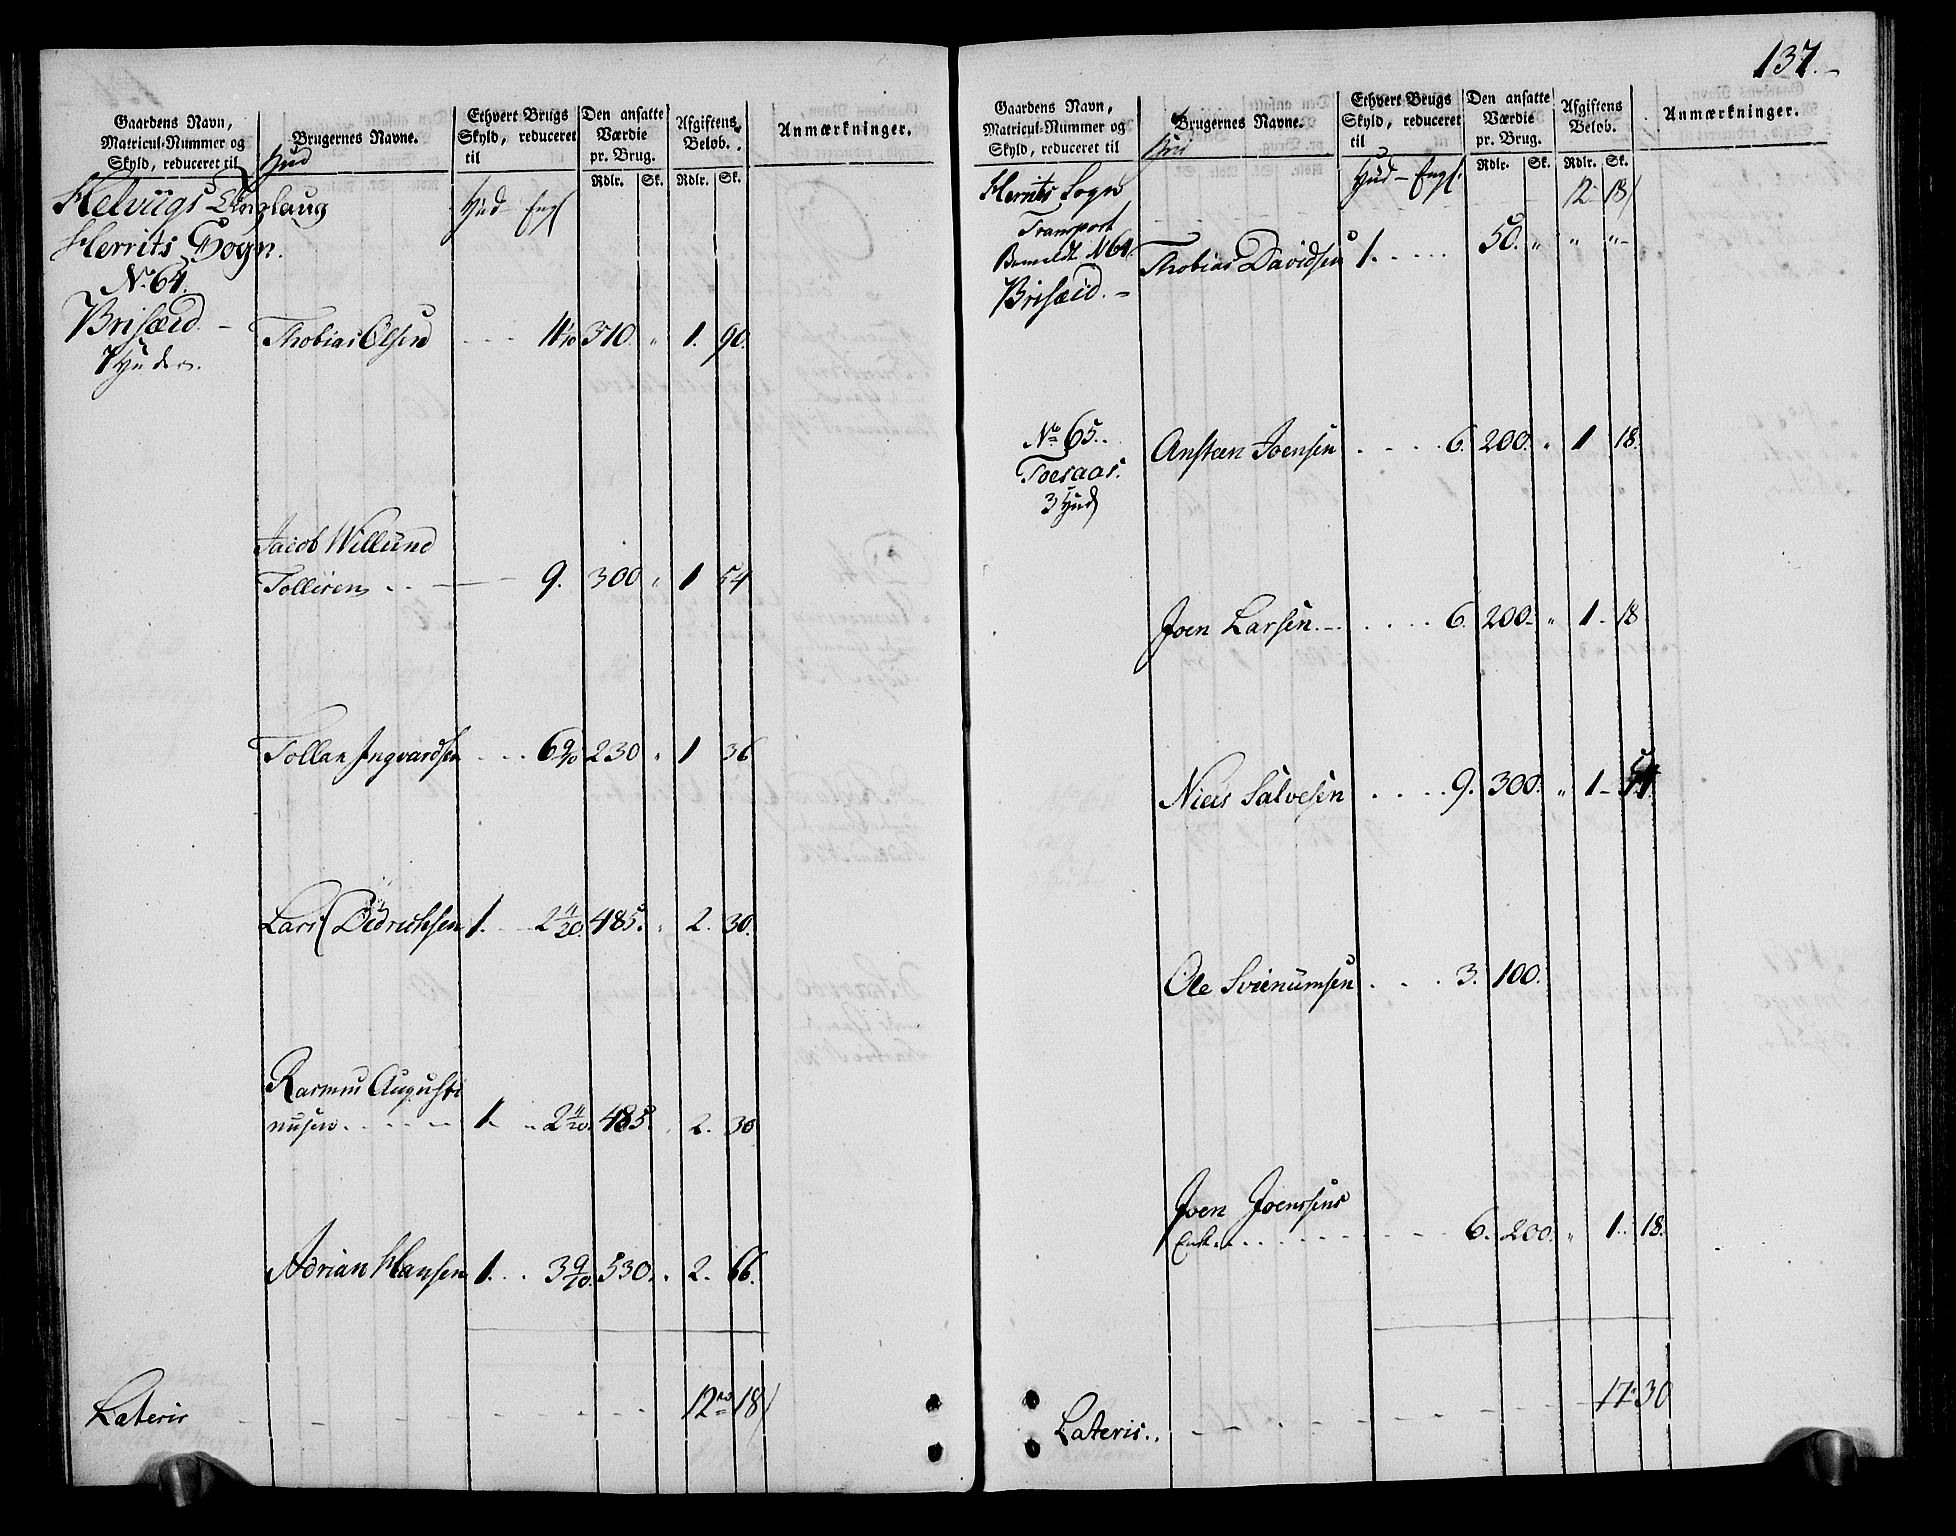 Gaardens Navn,
Matricul-Nummer og
Skyld, reduceret til
Hud
Brugernes Navne.
Ethvert Brugs
Skyld, reduceret
til
Den ansatte
Værdie
pr. Brug.
Rdlr. Sk.
Afgiftens
Beløb.
Rdlr. Sk.
Anmærkninger.
Helviigs
Herrits Sogn.
Hud Eng
No 64.
Brisæid.
7 Huder.
Thobias Olsen 310 " 1. 90.
Jacob Willund
Tollisen 9. 300 " 1 54
Tollak Ingvardsen 6 9/10 230 " 1 36
Lars Didrichsen 1. 2 11/20. 485. " 2. 30.
Rasmus Augusti
nusen 1. 2 11/20. 485. 2. 30
Adrian Hansen 1. 3 9/10. 530. " 2. 66.
Lateris 12 18
137.
Gaardens Navn,
Matricul-Nummer og
Skyld, reduceret til
Brugernes Navne.
Ethvert Brugs
Skyld, reduceret
til
Den ansatte
Værdie
pr. Brug.
Rdlr. Sk.
Afgiftens
Beløb.
Rdlr. Sk.
Anmærkninger.
Herrits Sogn
Hud - Eng
12 18
Transport
Bemeldte No 64.
Brisæid.
Thobias Davidsen 1. 50. " " "
No 65.
Toesaas.
3 Hud
Ansteen Joensen 6. 200. " 1 18.
Joen Larsen 6. 200 " 1 18
Niels Salvesen 9. 300. " 1 54.
Ole Svenumsen 3. 100.
Joen Joenssens
Enke 6. 200. " 1. 18.
Lateris. 17 30